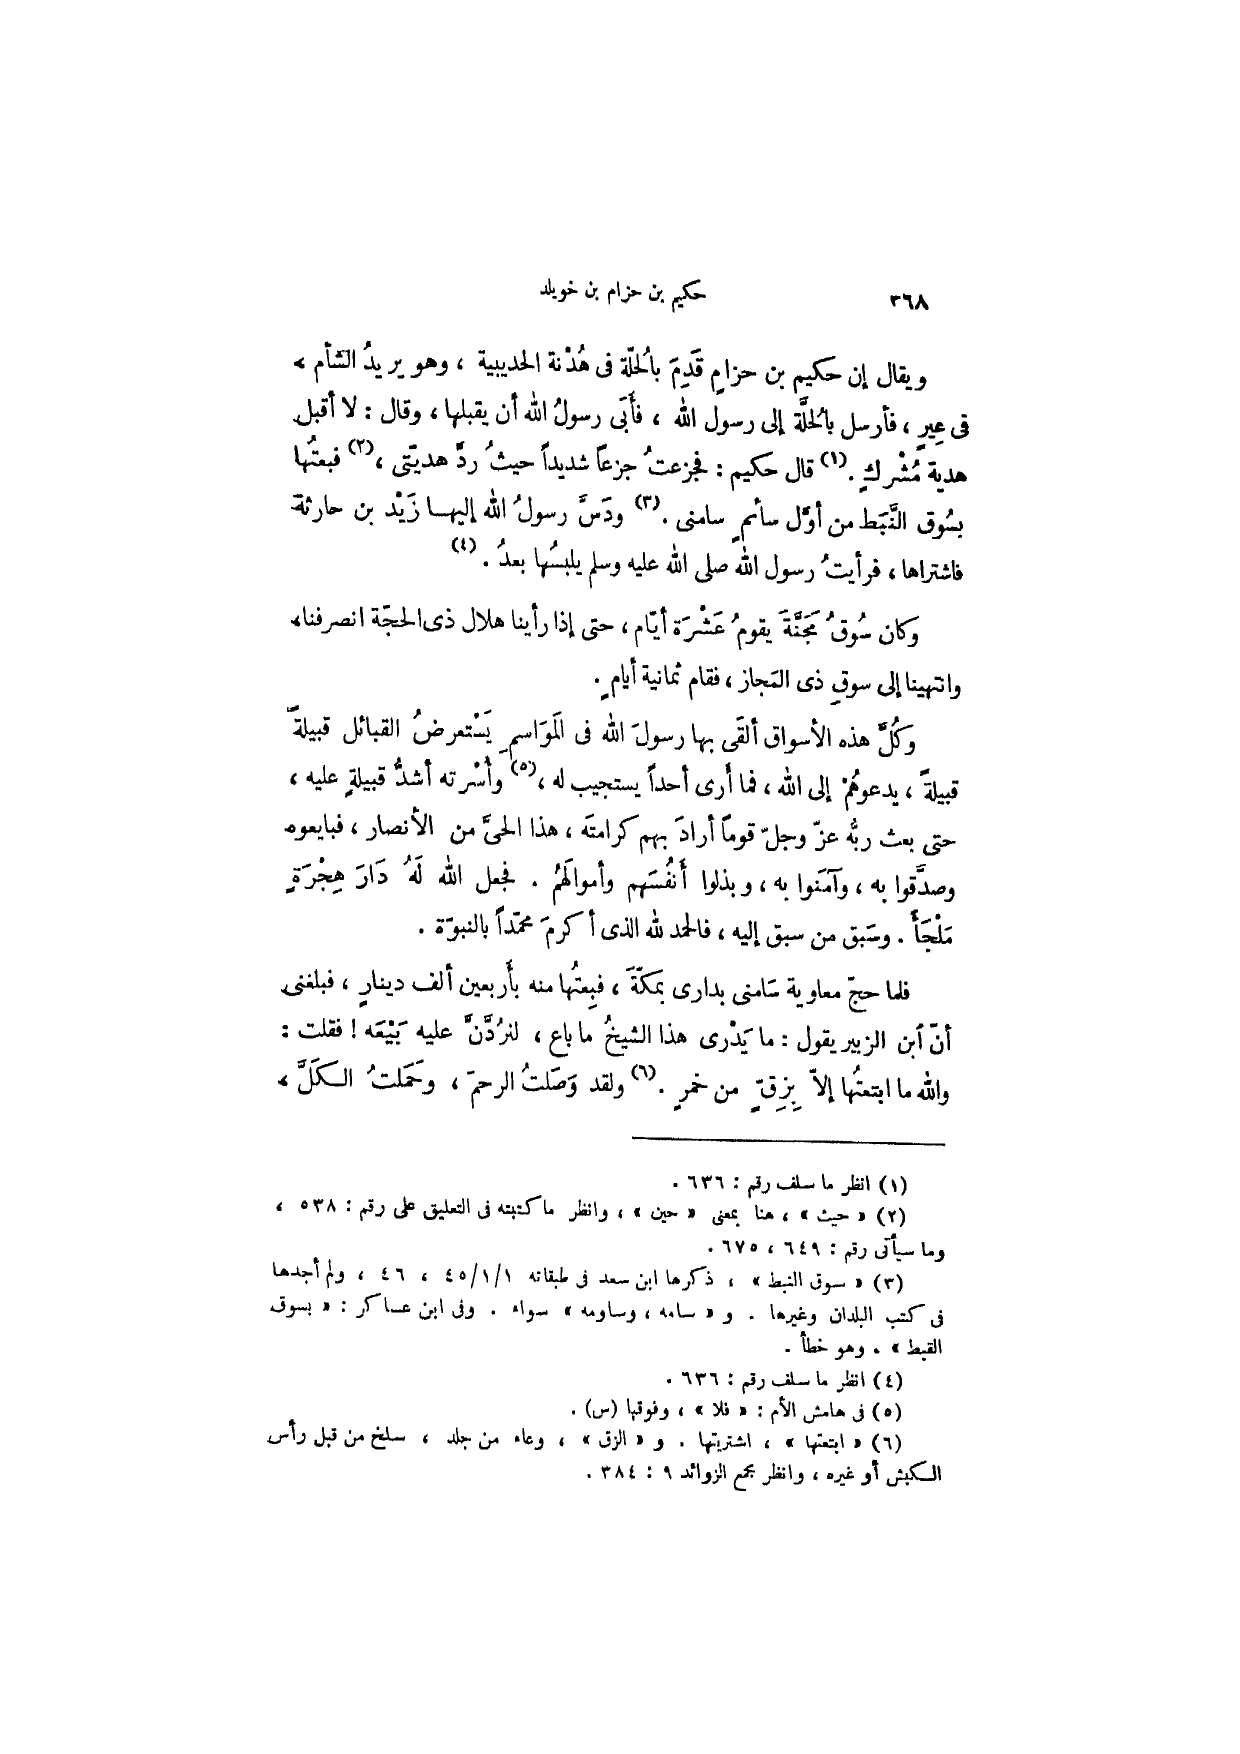 ٣٦٨
حكيم بن حزام بن خويلد
ويقال إن حكيم بن حزامٍ قَدِمَ بالحُلّة فى هُدْنة الحديبية ، وهو يريدُ الشأم ،
فى عِيرٍ ، فأرسل بالحُلَّة إلى رسول الله ، فأَبَى رسولُ الله أن يقبلها ، وقال : لا أقبل
هدية مُشْركٍ .(١) قال حكيم : فجزعتُ جزعاً شديداً حيثُ ردَّ هديتى ،(٢) فبعتُها
بسُوق النَّبَط من أوّل سائمٍ سامنى .(٣) ودَسَّ رسولُ الله إليها زَيْد بن حارثة
فاشتراها ، فرأيتُ رسول الله صلى الله عليه وسلم يلبسُها بعدُ .(٤)
وكان سُوقُ مَجَنَّةَ يقومُ عَشْرَة أيّام ، حتى إذا رأينا هلال ذى الحجّة انصرفنا ،
وانتهينا إلى سوقِ ذى المَجاز ، فقام ثمانية أيامٍ .
وكُلَّ هذه الأسواق ألقَى بها رسولَ الله فى المَوَاسمِ يَسْتعرضُ القبائل قبيلةً
قبيلةً ، يدعوهُمْ إلى الله ، فما أَرى أحداً يستجيب له ،(٥) وأُسْرته أشدُّ قبيلةٍ عليه ،
حتى بعث ربُّه عزّ وجلّ قوماً أرادَ بهم كرامتَه ، هذا الحىَّ من الأنصار ، فبايعوه
وصدَّقوا به ، وآمَنوا به ، وبذلوا أَنفُسَهم وأموالَهمُ . فجعل الله لَهُ دَارَ هِجْرَةٍ
مَلْجَأً . وسَبق من سبق إليه ، فالحمد لله الذى أكرمَ محمّداً بالنبوّة .
فلما حجّ معاوية سَامنى بدارى بمكّةَ ، فبِعتُها منه بأَربعين ألف دينارٍ ، فبلغنى
أنّ ابن الزبير يقول : ما يَدْرى هذا الشيخُ ما باع ، لنرُدَّنَّ عليه بَيْعَه ! فقلت :
والله ما ابتعتُها إلاّ بِزِقّ من خمرٍ .(٦) ولقد وَصَلتُ الرحمَ ، وحَمَلتُ الكَلَّ ،
(١) انظر ما سلف رقم : ٦٣٦ .
(٢) « حيث » ، هنا بمعنى « حين » ، وانظر ما كتبته فى التعليق على رقم : ٥٣٨ ،
وما سيأتى رقم : ٦٤٩ ، ٦٧٥ .
(٣) « سوق النبط » ، ذكرها ابن سعد فى طبقاته ٤٥/١/١ ، ٤٦ ، ولم أجدها
فى كتب البلدان وغيرها . و « سامه ، وساومه » سواء . وفى ابن عساكر : « بسوق
القبط » . وهو خطأ .
(٤) انظر ما سلف رقم : ٦٣٦ .
(٥) فى هامش الأم : « فلا » ، وفوقها (س) .
(٦) « ابتعتها » ، اشتريتها . و « الزق » ، وعاء من جلد ، سلخ من قبل رأس
الكبش أو غيره ، وانظر مجمع الزوائد ٩ : ٣٨٤ .